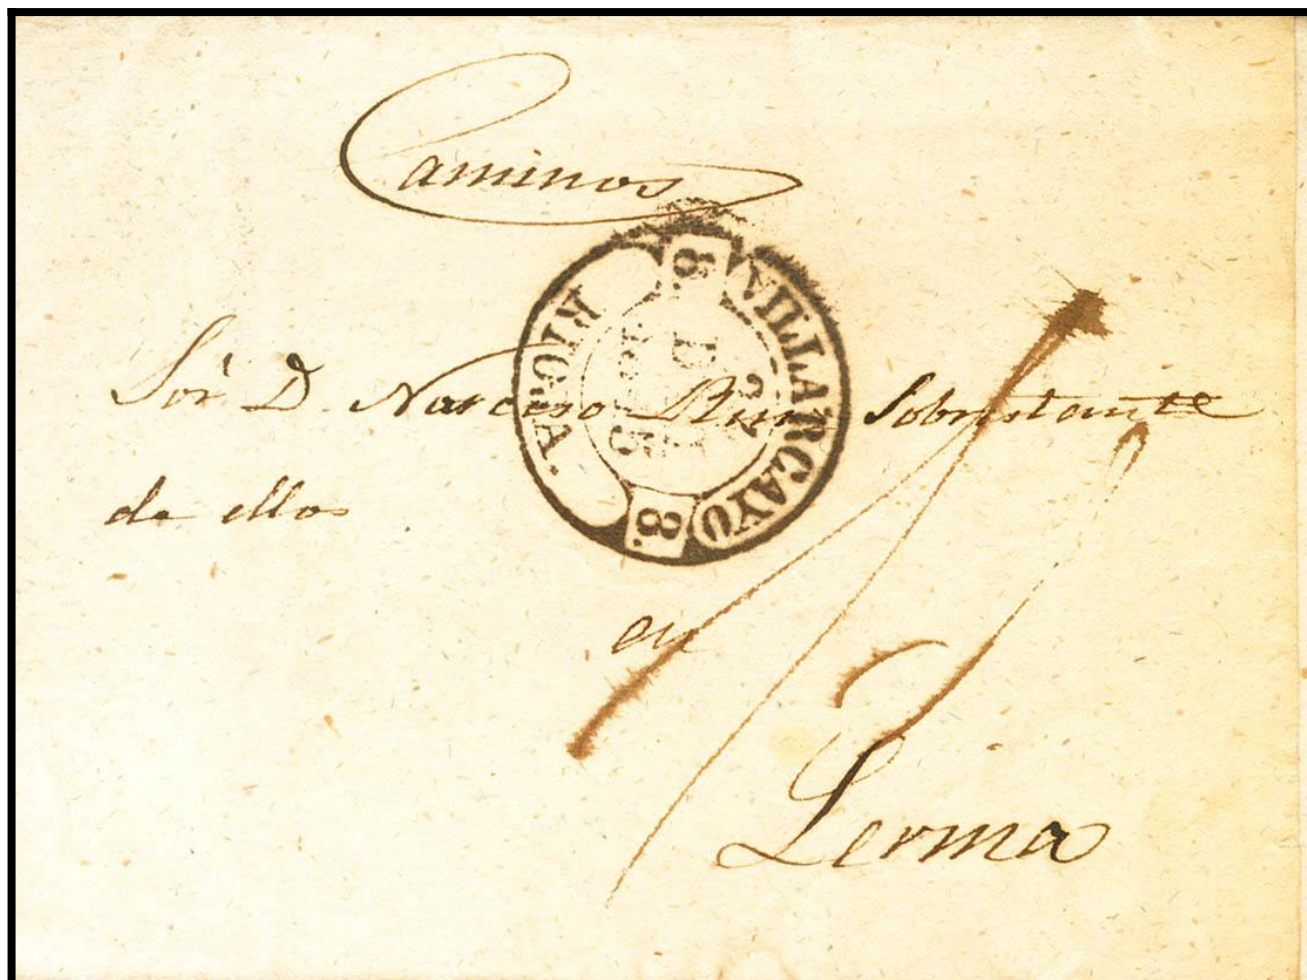 Caminos
VILLARCAYO
8
RIOJA.
8
Sor D. Narciso Ruiz Sobrestante
de ellos
en
Lerma